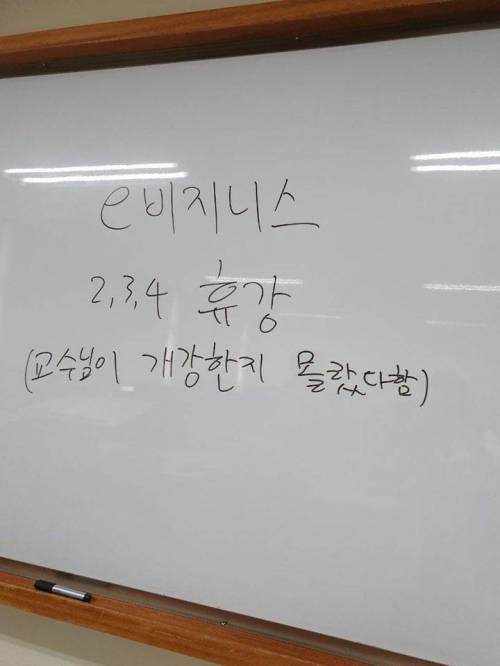 e비지니스
2,3,4 휴강
(교수님이 개강한지 몰랐다함)